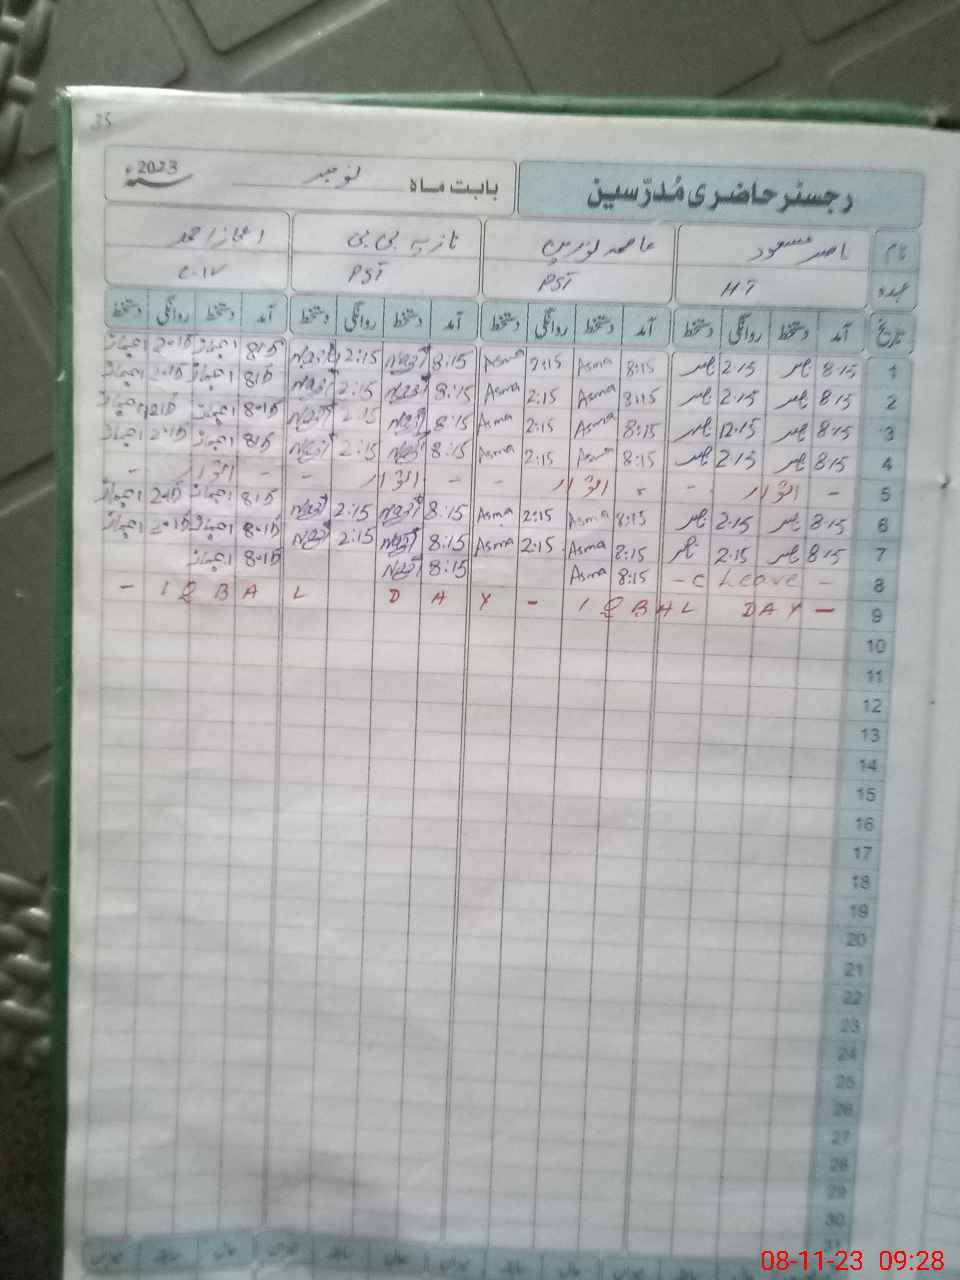 35
رجسٹر حاضری مُدرّسین بابت ماہ نومبر 2023ء
نام ناصر مسعود عاصمہ نورین نازیہ بی بی اعجاز احمد
عہدہ HT PST PST C-IV
تاریخ آمد دستخط روانگی دستخط آمد دستخط روانگی دستخط آمد دستخط روانگی دستخط آمد دستخط روانگی دستخط
1 8:15 2:15 8:15 Asma 2:15 Asma 8:15 2:15 8:15 اعجاز 2:15 اعجاز
2 8:15 2:15 8:15 Asma 2:15 Asma 8:15 2:15 8:15 اعجاز 2:15 اعجاز
3 8:15 12:15 8:15 Asma 2:15 Asma 8:15 2:15 8:15 اعجاز 2:15 اعجاز
4 8:15 2:15 8:15 Asma 2:15 Asma 8:15 2:15 8:15 اعجاز 2:15 اعجاز
5 - اتوار - - اتوار - - اتوار - - اتوار -
6 8:15 2:15 8:15 Asma 2:15 Asma 8:15 2:15 8:15 اعجاز 2:15 اعجاز
7 8:15 2:15 8:15 Asma 2:15 Asma 8:15 2:15 8:15 اعجاز 2:15 اعجاز
8 - C Leave - 8:15 Asma 8:15 8:15 اعجاز
9 - IQBAL DAY - IQBAL DAY -
10
11
12
13
14
15
16
17
18
19
20
21
22
23
24
25
26
27
28
29
30
31
08-11-23 09:28